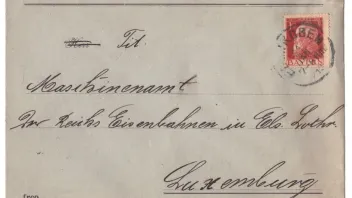 Tit.
Maschinenamt
Der Reichs Eisenbahnen in Els. Lothr.
Luxemburg